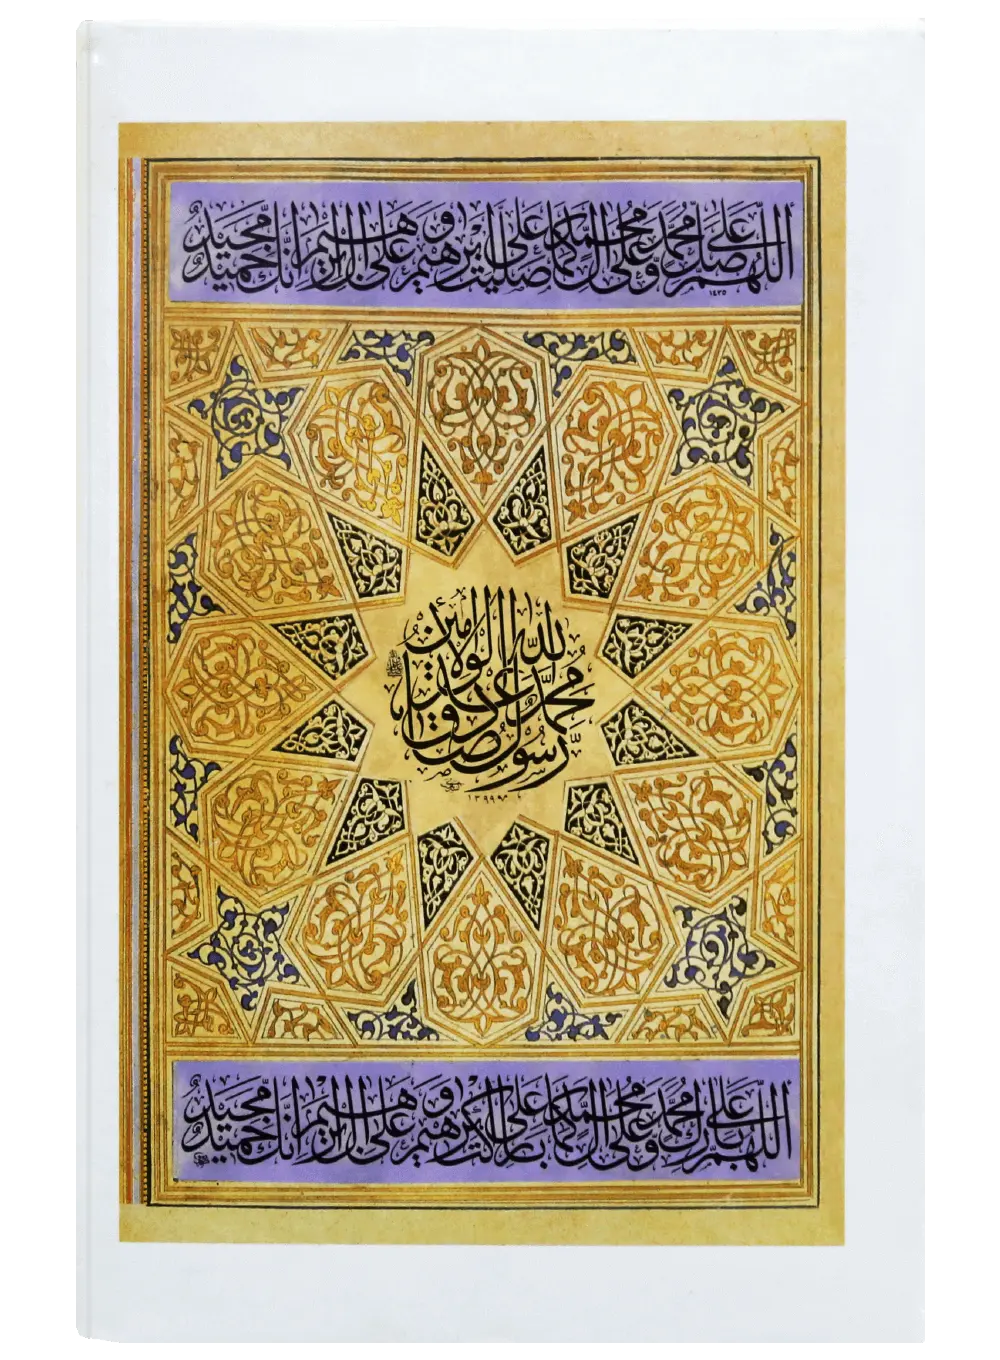 اللهم صل على محمد وعلى آل محمد كما صليت على إبراهيم وعلى آل إبراهيم إنك حميد مجيد
١٤٣٥
محمد رسول الله صادق الوعد الأمين
١٣٩٩
اللهم بارك على محمد وعلى آل محمد كما باركت على إبراهيم وعلى آل إبراهيم إنك حميد مجيد